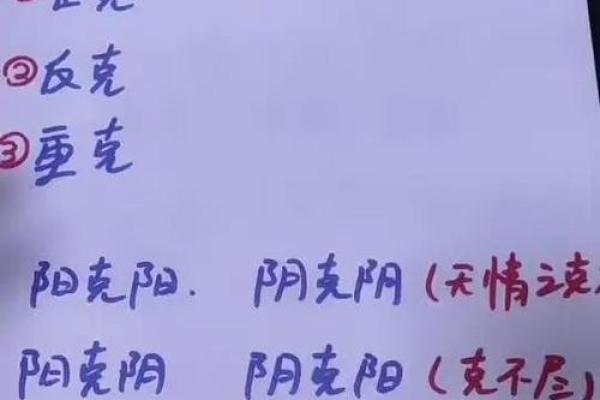 正克
②反克
③重克
阳克阳. 阴克阴(无情之克)
阳克阴 阴克阳(克不尽)